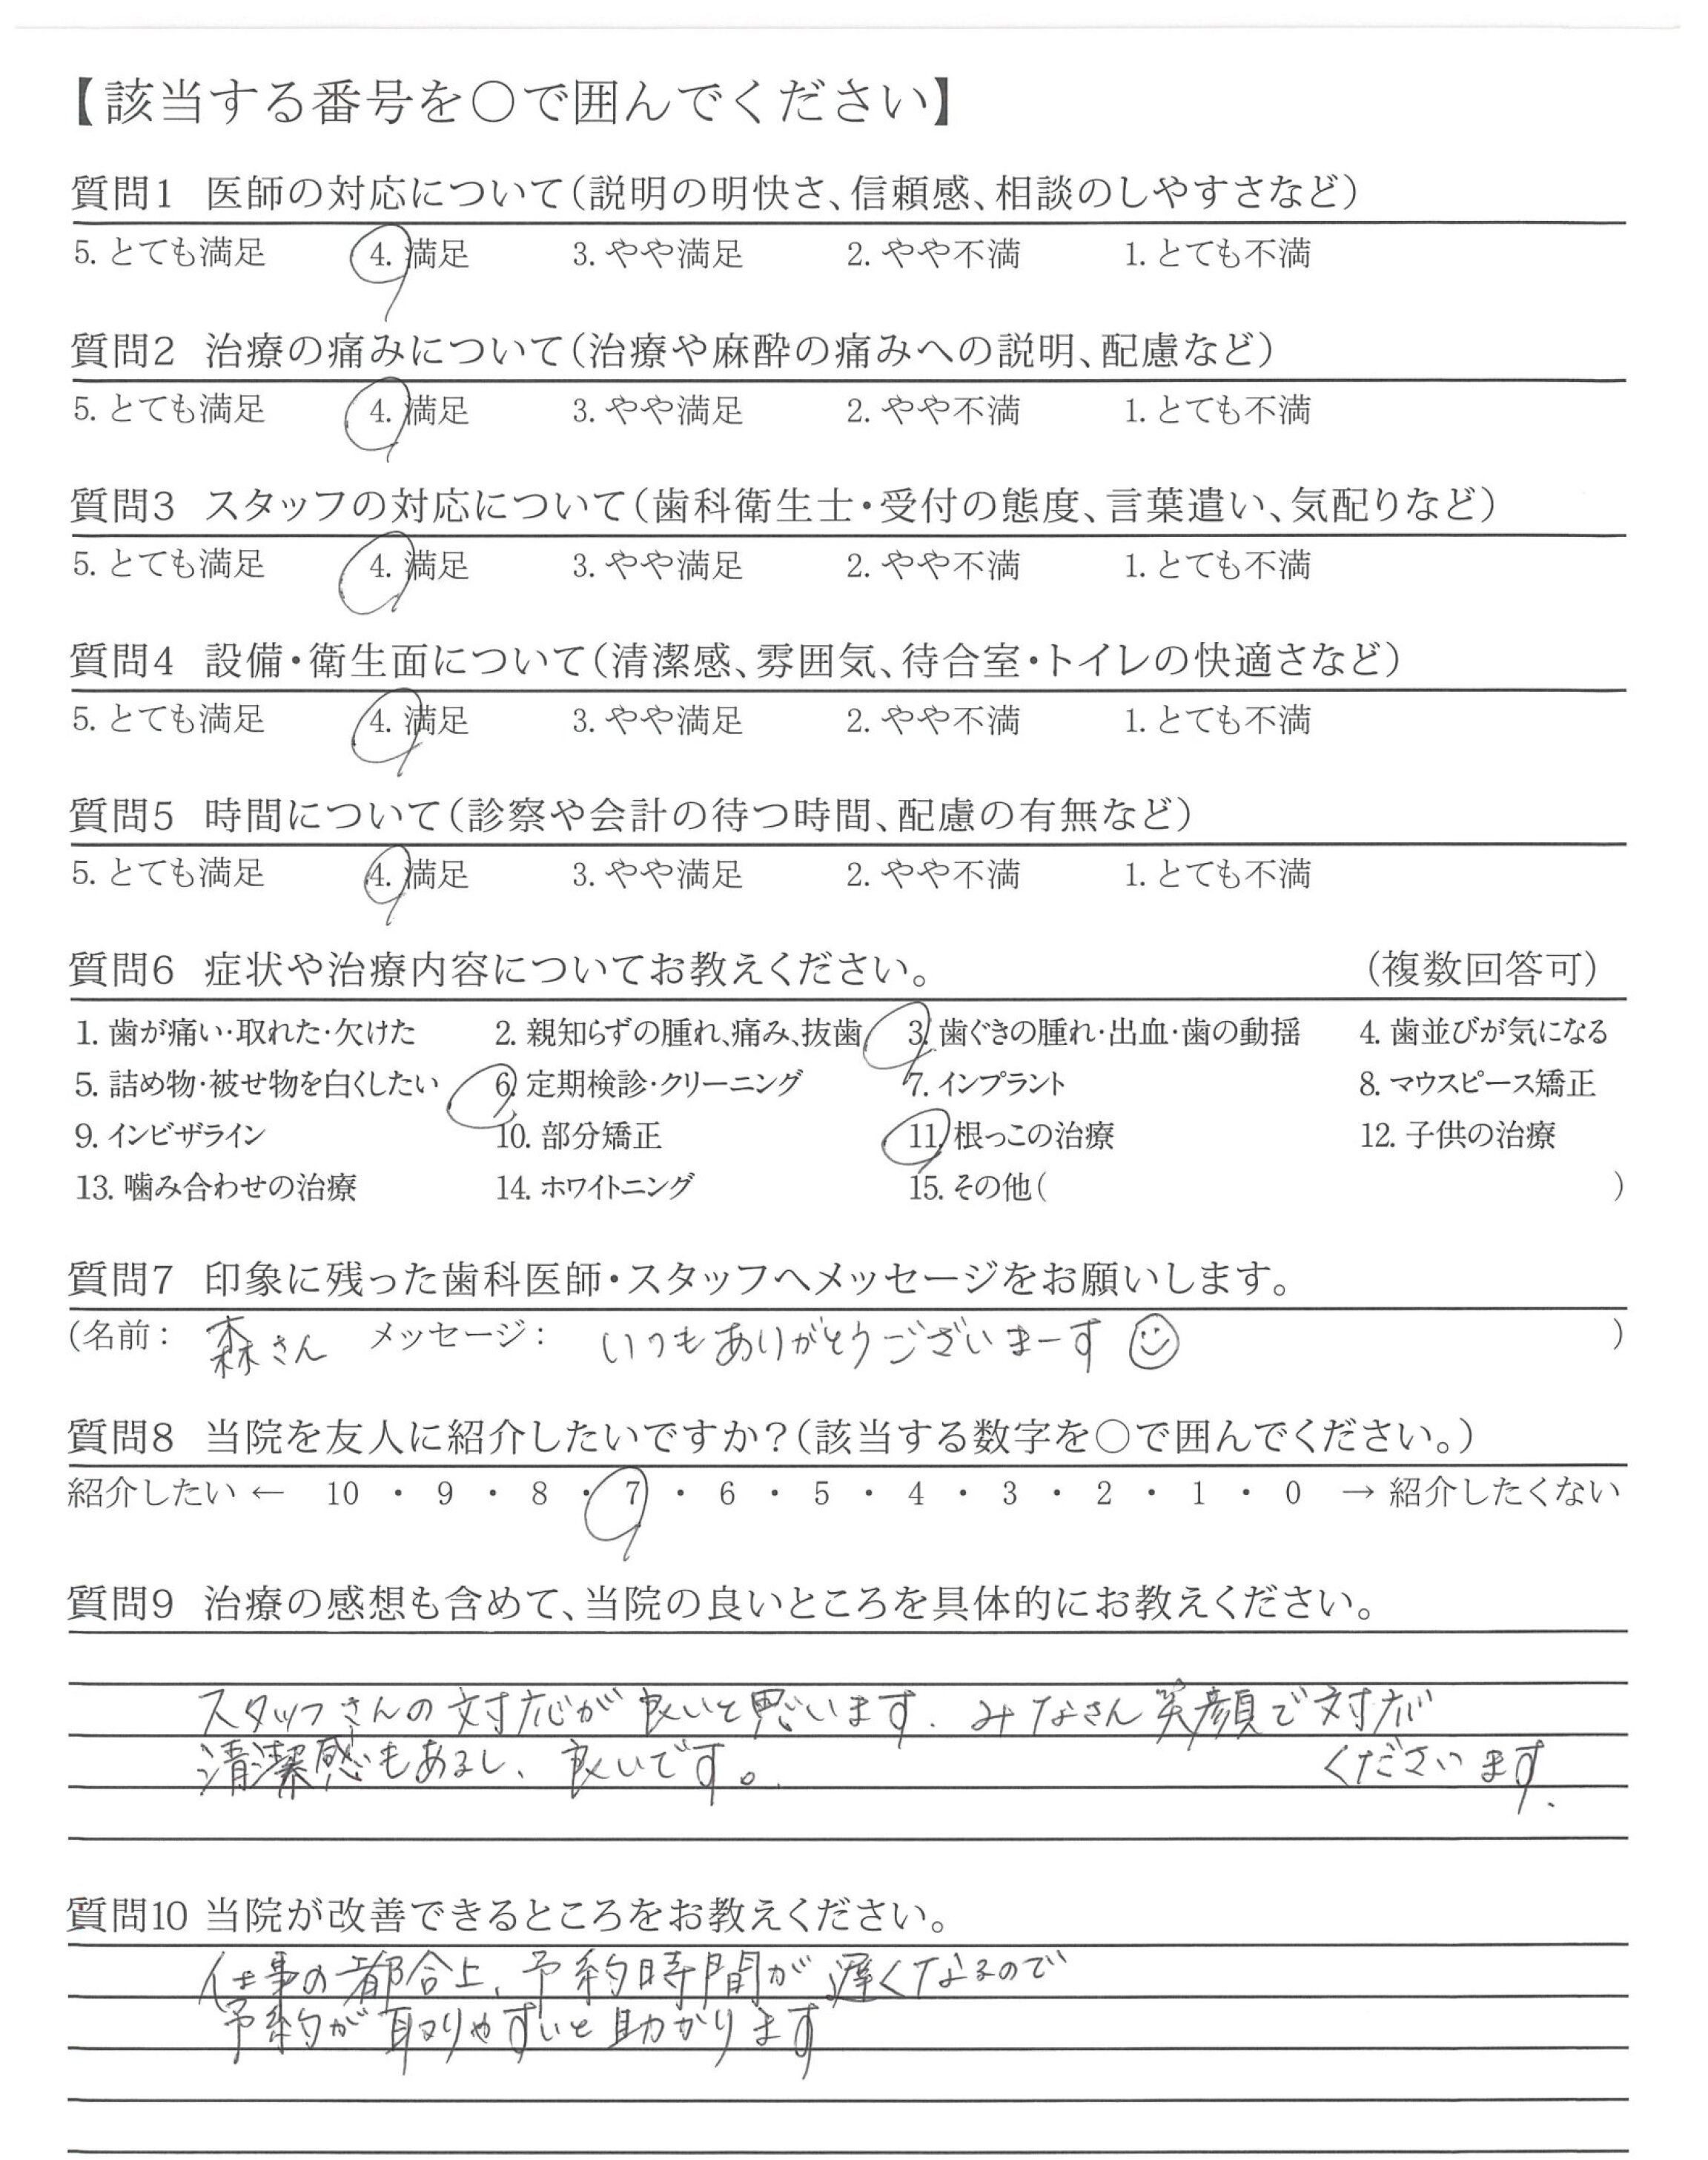 【該当する番号を〇で囲んでください】
質問1 医師の対応について(説明の明快さ、信頼感、相談のしやすさなど)
5. とても満足 4. 満足 3. やや満足 2. やや不満 1. とても不満
質問2 治療の痛みについて(治療や麻酔の痛みへの説明、配慮など)
5. とても満足 4. 満足 3. やや満足 2. やや不満 1. とても不満
質問3 スタッフの対応について(歯科衛生士・受付の態度、言葉遣い、気配りなど)
5. とても満足 4. 満足 3. やや満足 2. やや不満 1. とても不満
質問4 設備・衛生面について(清潔感、雰囲気、待合室・トイレの快適さなど)
5. とても満足 4. 満足 3. やや満足 2. やや不満 1. とても不満
質問5 時間について(診察や会計の待つ時間、配慮の有無など)
5. とても満足 4. 満足 3. やや満足 2. やや不満 1. とても不満
質問6 症状や治療内容についてお教えください。 (複数回答可)
1. 歯が痛い・取れた・欠けた 2. 親知らずの腫れ、痛み、抜歯 3. 歯ぐきの腫れ・出血・歯の動揺 4. 歯並びが気になる
5. 詰め物・被せ物を白くしたい 6. 定期検診・クリーニング 7. インプラント 8. マウスピース矯正
9. インビザライン 10. 部分矯正 11. 根っこの治療 12. 子供の治療
13. 噛み合わせの治療 14. ホワイトニング 15. その他( )
質問7 印象に残った歯科医師・スタッフへメッセージをお願いします。
(名前: 森さん メッセージ: いつもありがとうございまーす )
質問8 当院を友人に紹介したいですか?(該当する数字を〇で囲んでください。)
紹介したい ← 10 ・ 9 ・ 8 ・ 7 ・ 6 ・ 5 ・ 4 ・ 3 ・ 2 ・ 1 ・ 0 → 紹介したくない
質問9 治療の感想も含めて、当院の良いところを具体的にお教えください。
スタッフさんの対応が良いと思います. みなさん笑顔で対応
くださいます.
清潔感もあるし、良いです。
質問10 当院が改善できるところをお教えください。
仕事の都合上、予約時間が遅くなるので
予約が取りやすいと助かります